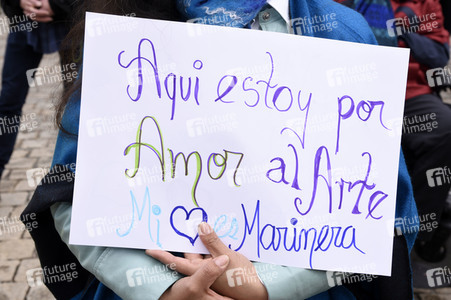 Aqui estoy por
Amor al Arte
Mi ♡ es Marinera
future image